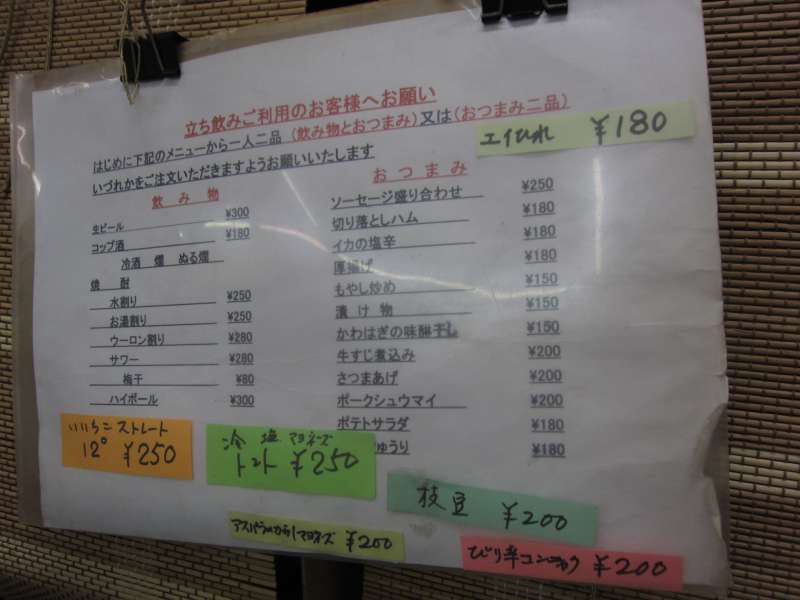 立ち飲みご利用のお客様へお願い
はじめに下記のメニューから一人二品(飲み物とおつまみ)又は(おつまみ二品)
いづれかをご注文いただきますようお願いいたします
エイひれ ¥180
飲み物
生ビール ¥300
コップ酒 ¥180
冷酒 燗 ぬる燗
焼酎
水割り ¥250
お湯割り ¥250
ウーロン割り ¥280
サワー ¥280
梅干 ¥80
ハイボール ¥300
おつまみ
ソーセージ盛り合わせ ¥250
切り落としハム ¥180
イカの塩辛 ¥180
厚揚げ ¥180
もやし炒め ¥150
漬け物 ¥150
かわはぎの味醂干し ¥150
牛すじ煮込み ¥200
さつまあげ ¥200
ポークシュウマイ ¥200
ポテトサラダ ¥180
ゅうり ¥180
いいちこストレート
12° ¥250
冷 塩 マヨネーズ
トマト ¥250
枝豆 ¥200
アスパラのカラシマヨネズ ¥200
ぴり辛コンニャク ¥200